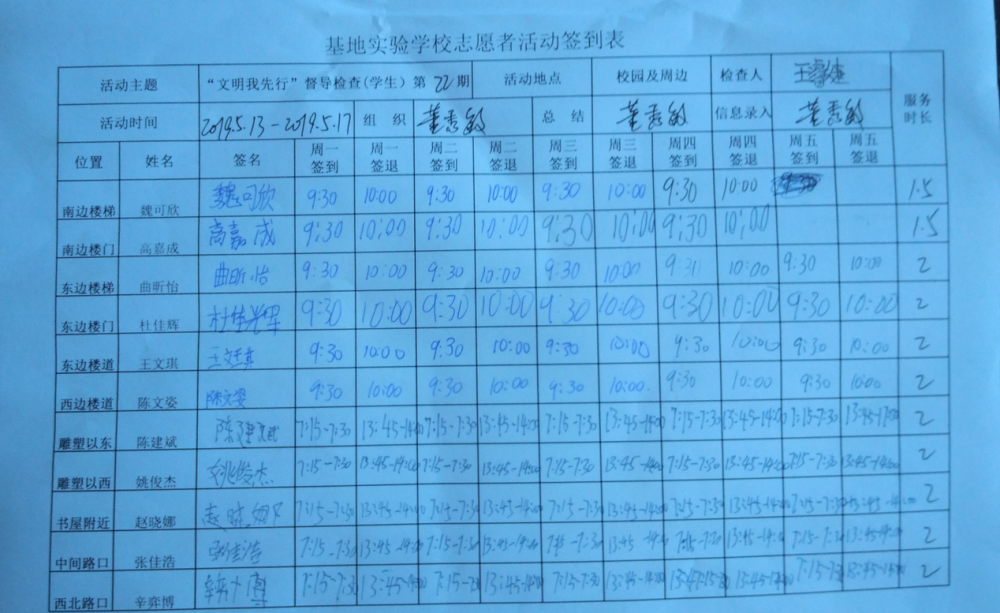 基地实验学校志愿者活动签到表
活动主题 “文明我先行”督导检查(学生)第22期 活动地点 校园及周边 检查人 服务时长
活动时间 2019.5.13-2019.5.17 组织 董秀敏 总结 董秀敏 信息录入 董秀敏
位置 姓名 签名 周一签到 周一签退 周二签到 周二签退 周三签到 周三签退 周四签到 周四签退 周五签到 周五签退
南边楼梯 魏可欣 魏可欣 9:30 10:00 9:30 10:00 9:30 10:00 9:30 10:00 1.5
南边楼门 高嘉成 高嘉成 9:30 10:00 9:30 10:00 9:30 10:00 9:30 10:00 1.5
东边楼梯 曲昕怡 曲昕怡 9:30 10:00 9:30 10:00 9:30 10:00 9:30 10:00 9:30 10:00 2
东边楼门 杜佳辉 杜佳辉 9:30 10:00 9:30 10:00 9:30 10:00 9:30 10:00 9:30 10:00 2
东边楼道 王文琪 王文琪 9:30 10:00 9:30 10:00 9:30 10:00 9:30 10:00 9:30 10:00 2
西边楼道 陈文姿 陈文姿 9:30 10:00 9:30 10:00 9:30 10:00. 9:30 10:00 9:30 10:00 2
雕塑以东 陈建斌 陈建斌 7:15-7:30 13:45-14:00 7:15-7:30 13:45-14:00 7:15-7:30 13:45-14:00 7:15-7:30 13:45-14:00 7:15-7:30 2
雕塑以西 姚俊杰 姚俊杰 7:15-7:30 13:45-14:00 7:15-7:30 13:45-14:00 7:15-7:30 13:45-14:00 7:15-7:30 13:45-14:00 7:15-7:30 13:45-14:00 2
书屋附近 赵晓娜 赵晓娜 7:15-7:30 13:45-14:00 7:15-7:30 13:45-14:00 7:15-7:30 13:45-14:00 7:15-7:30 13:45-14:00 7:15-7:30 13:45-14:00 2
中间路口 张佳浩 张佳浩 7:15-7:30 13:45-14:00 7:15-7:30 13:45-14:00 13:45-14:00 13:45-14:00 7:15-7:30 13:45-14:00 2
西北路口 辛弈博 7:15-7:30 13:45-14:00 7:15-7:30 13:45-14:00 7:15-7:30 13:45-14:00 13:45-14:00 7:15-7:30 13:45-14:00 2